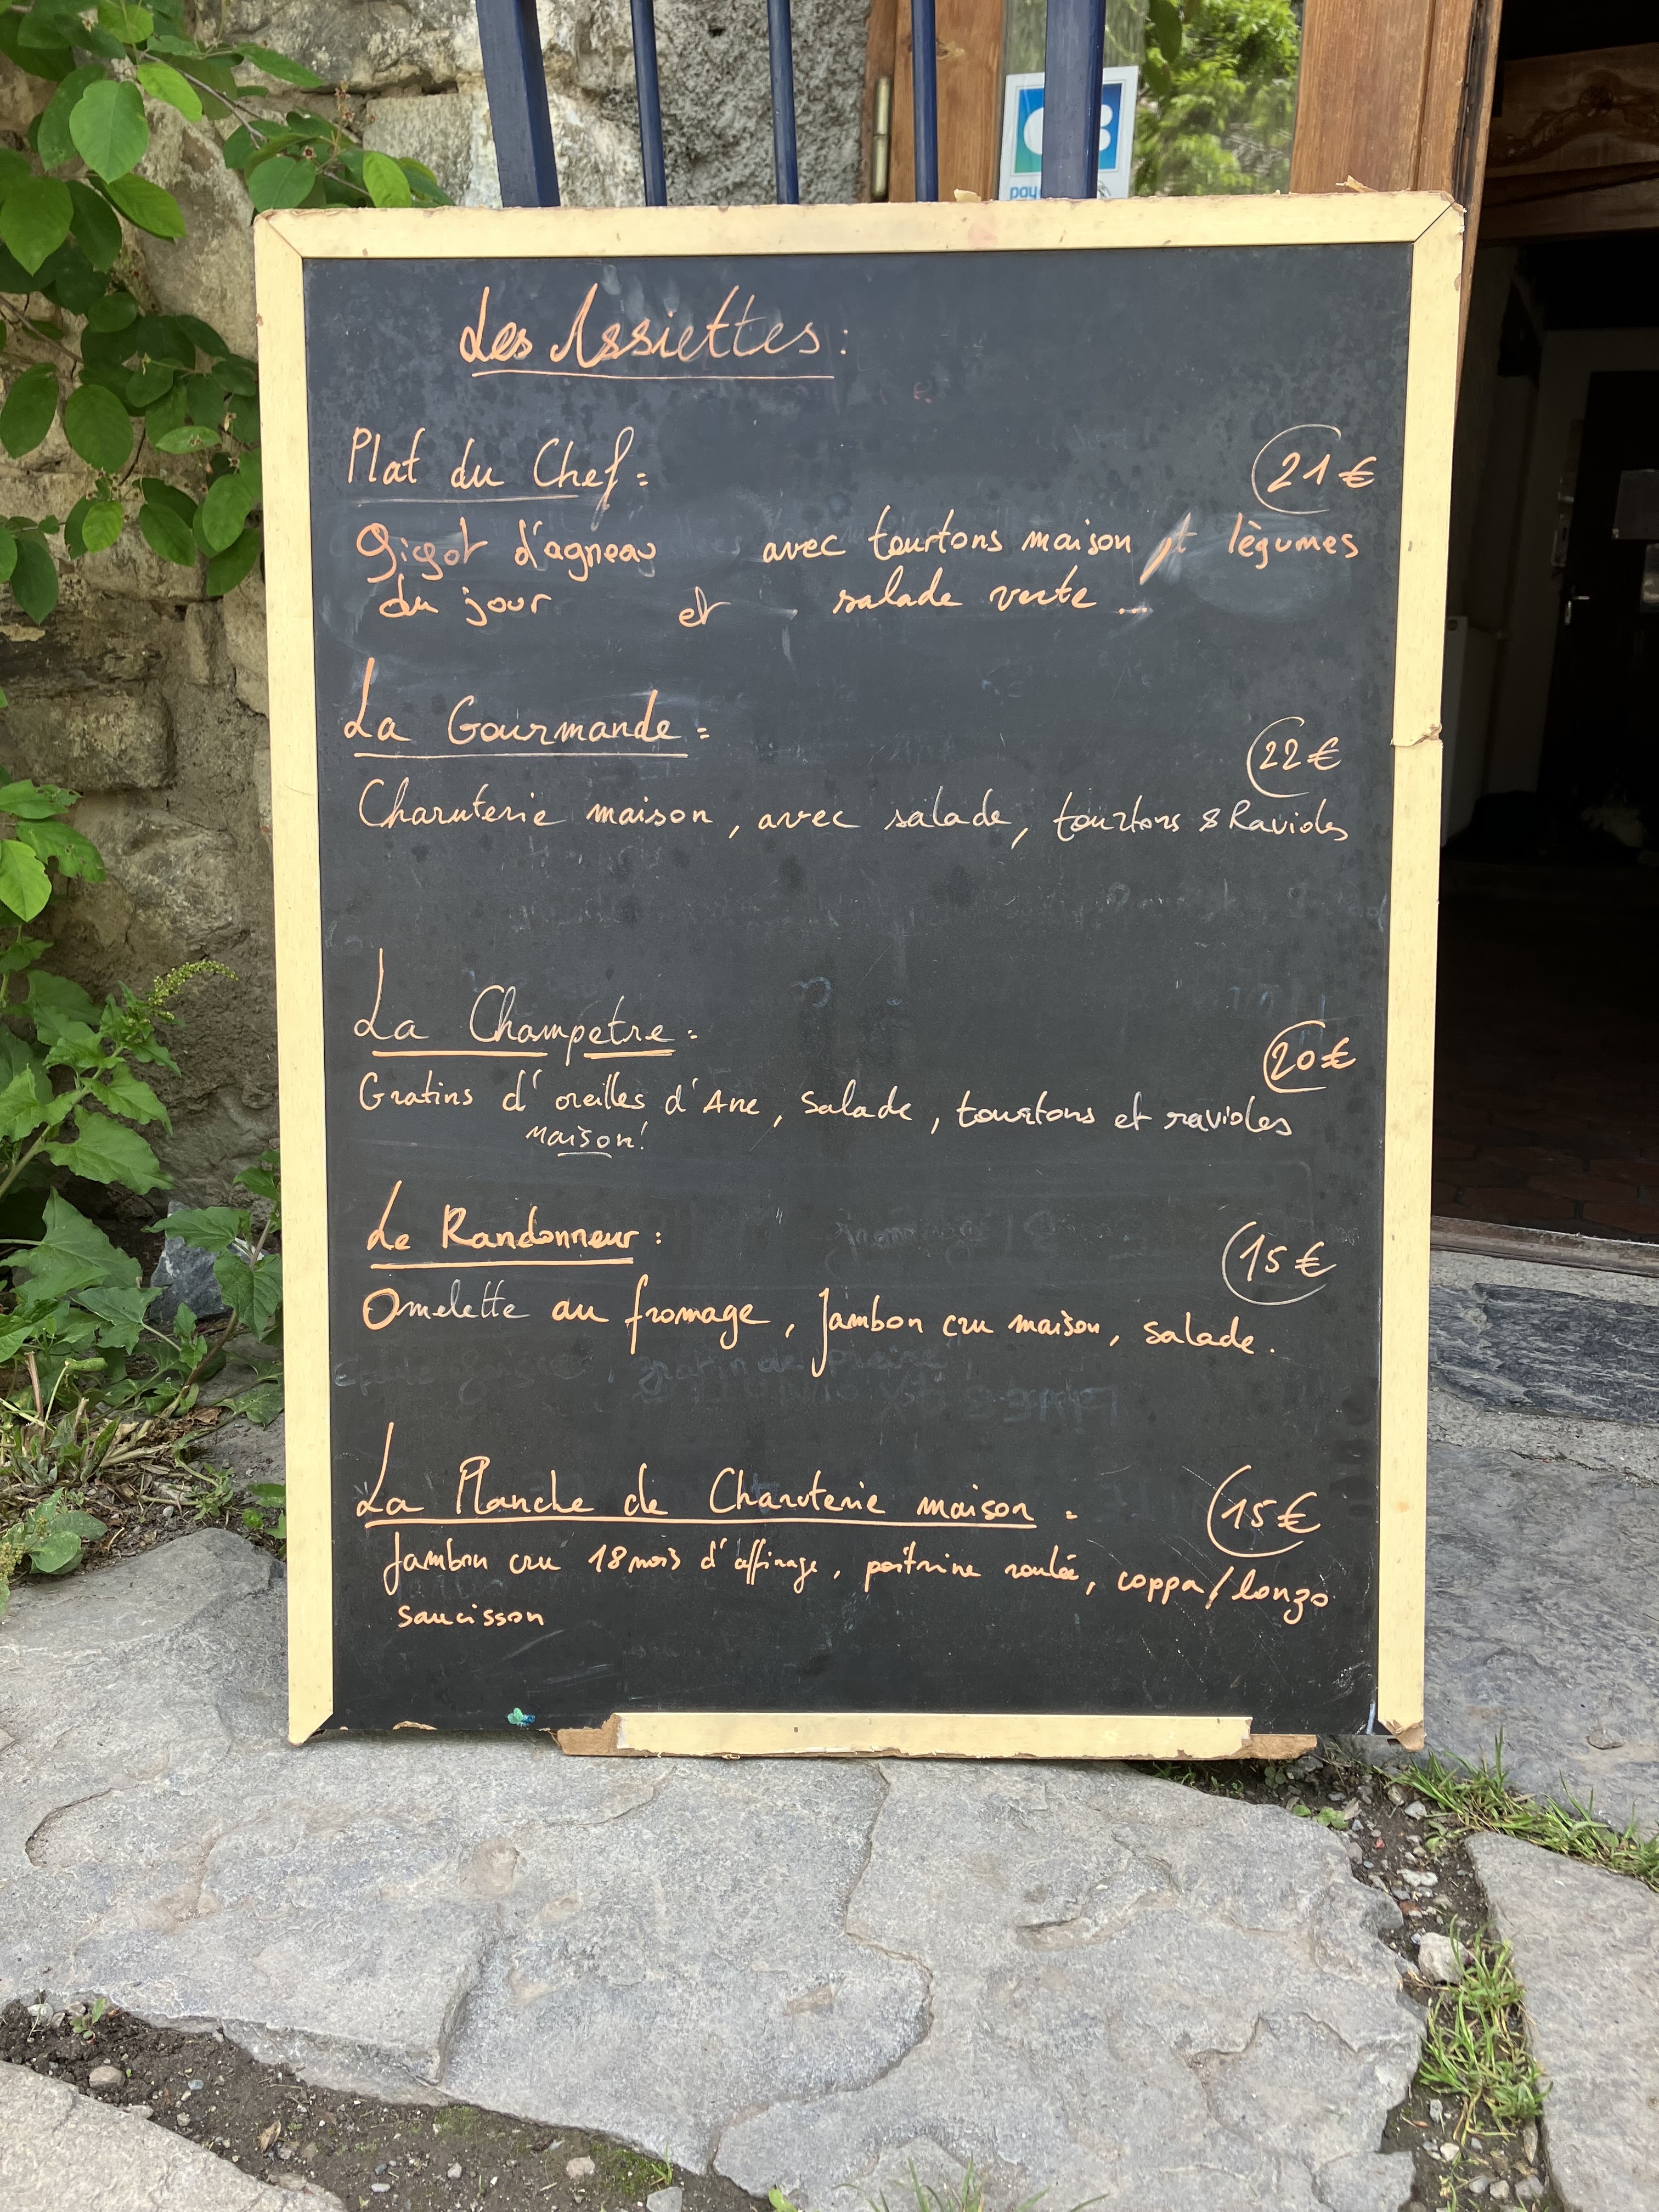 CB
pay
Les Assiettes :
Plat du Chef :
21 €
Gigot d'agneau avec tourtons maison et lègumes
du jour et salade verte ...
La Gourmande :
22 €
Charcuterie maison, avec salade, tourtons & Ravioles
La Champetre :
20 €
Gratins d'oreilles d'Ane, salade, tourtons et ravioles
maison!
Le Randonneur :
15 €
Omelette au fromage, jambon cru maison, salade.
La Planche de Charcuterie maison :
15 €
Jambon cru 18 mois d'affinage, poitrine roulée, coppa/lonzo
saucisson